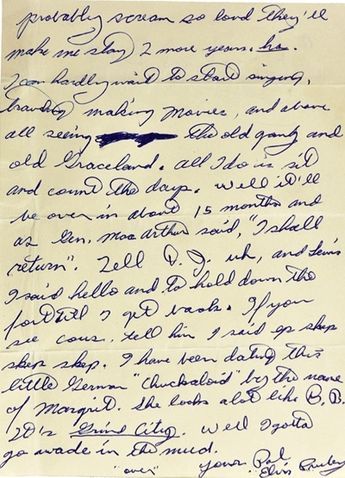 probably scream so loud they'll
make me stay 2 more years. ha.
I can hardly wait to start singing,
traveling making movies, and above
all seeing the old gang and
old Graceland. All I do is sit
and count the days. Well it'll
be over in about 15 months and
as Gen. Mac Arthur said, "I shall
return". Tell D. J. uh, and Lewis
I said hello and to hold down the
fort till I get back. If you
see cous. tell him I said ep skep
skep skep. I have been dating this
little German "Chuckaloid" by the name
of Margrit. She looks alot like B.B.
It's Grind City. Well I gotta
go wade in the mud.
"over" Yours, Pal
Elvis Presley